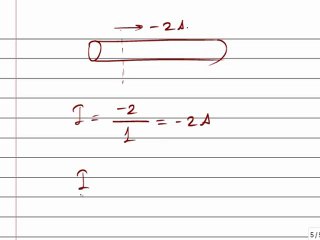 → -2A.
I = -2/1 = -2A
I
5/5